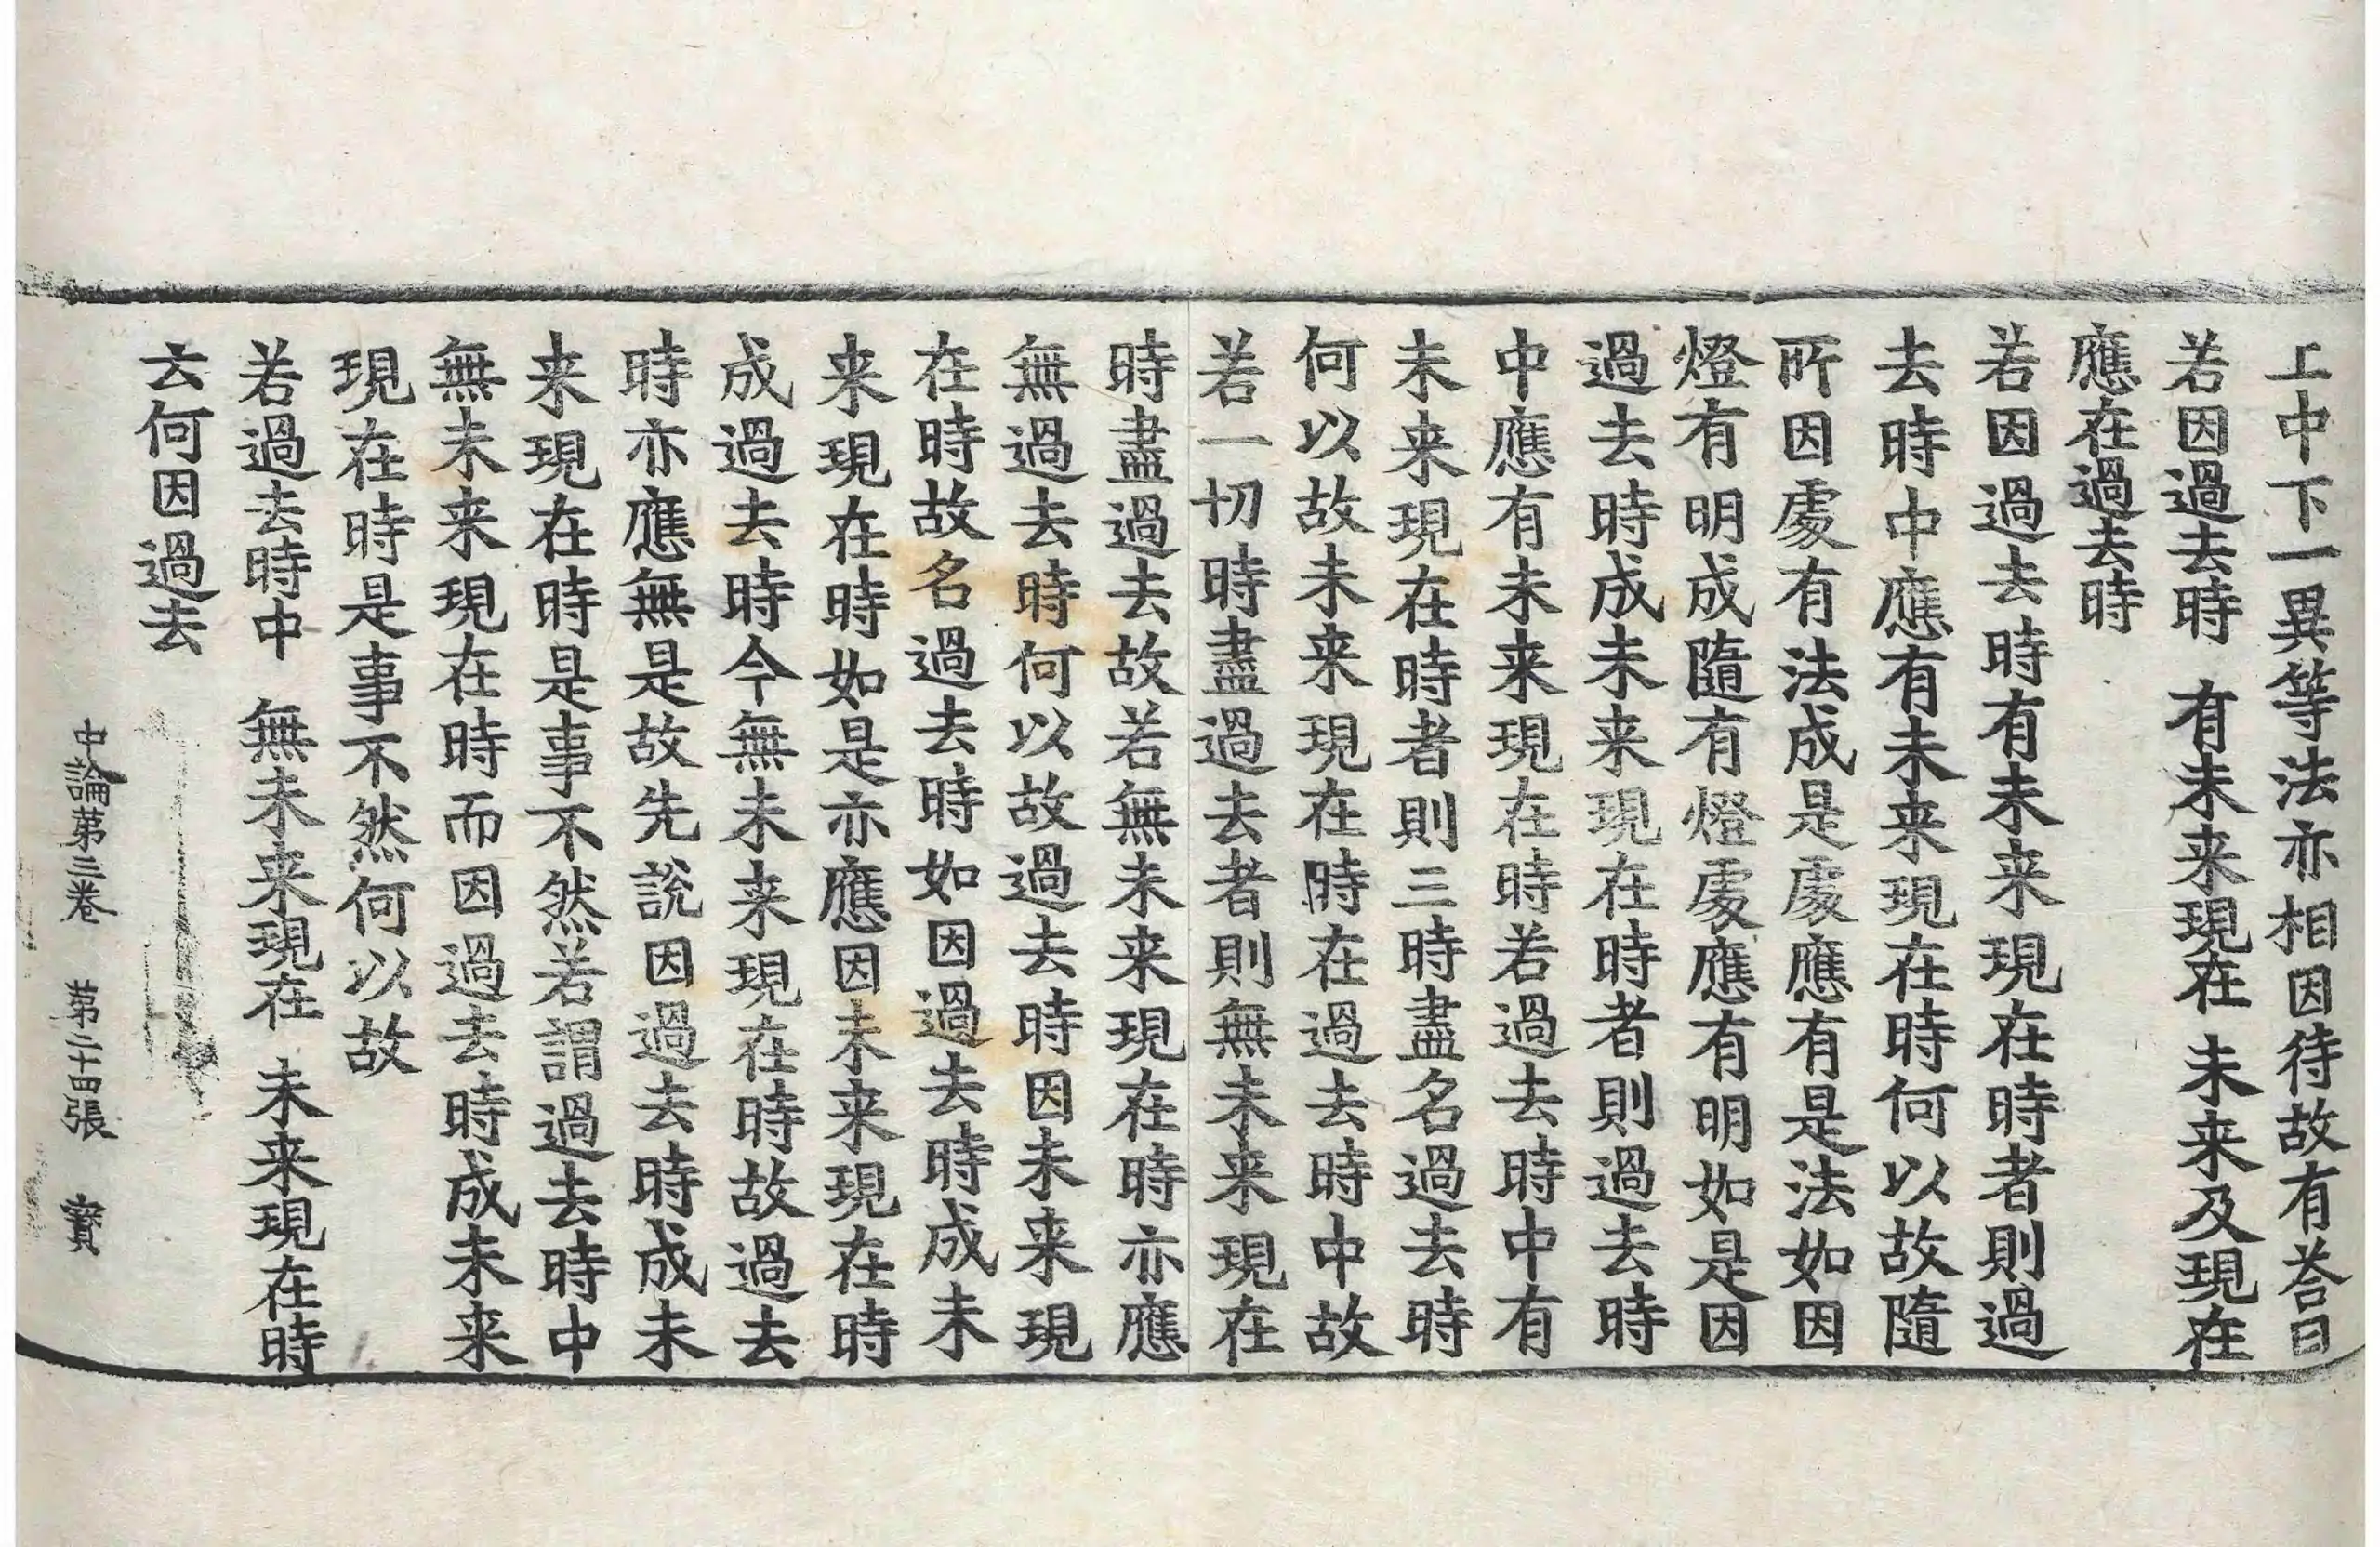 上中下一異等法亦相因待故有荅曰
若因過去時　有未来現在　未来及現在
應在過去時
若因過去時有未来現在時者則過
去時中應有未来現在時何以故隨
所因處有法成是處應有是法如因
燈有明成隨有燈處應有明如是因
過去時成未来現在時者則過去時
中應有未来現在時若過去時中有
未来現在時者則三時盡名過去時
何以故未来現在時在過去時中故
若一切時盡過去者則無未来現在
時盡過去故若無未来現在時亦應
無過去時何以故過去時因未来現
在時故名過去時如因過去時成未
来現在時如是亦應因未来現在時
成過去時今無未来現在時故過去
時亦應無是故先說因過去時成未
来現在時是事不然若謂過去時中
無未来現在時而因過去時成未来
現在時是事不然何以故
若過去時中　無未来現在　未来現在時
云何因過去
中論第三卷　第二十四張　寶